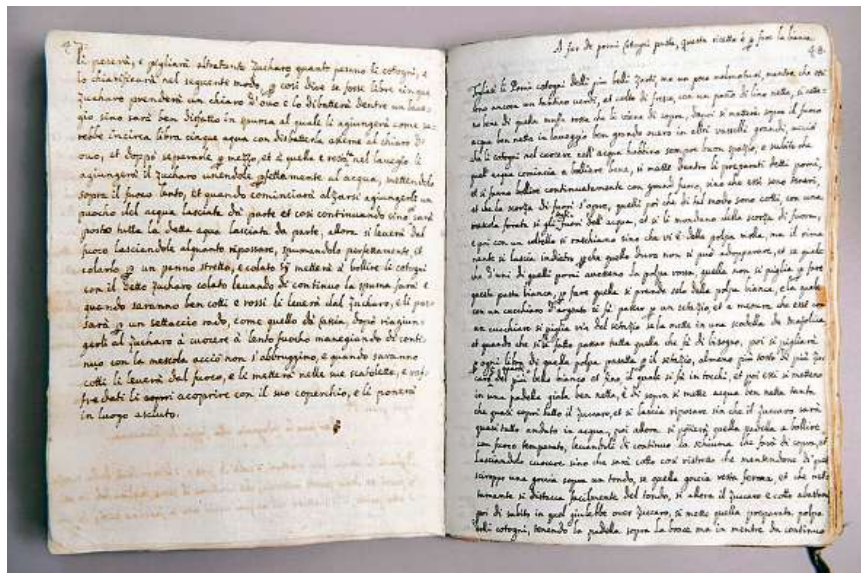 47.
li peserà, e pigliarà altratanto Zucharo quanto pesano li cotogni, e
lo chiarificarà nel seguente modo, cosi dise se fosse libre cinque
Zucharo prenderà un chiaro d'ovo e lo sbatterà dentro un
gio sino sarà ben disfatto in spuma al quale li agiungerà come sa-
rebbe incirca libra cinque aqua con disbatterla asieme al chiaro d'
ovo, et doppò separarle mezzo, et è quella e restà nel lavegio li
agiungerà il zucharo unendole pfettamente al acqua, mettendolo
sopra il fuoco lento, et quando cominciarà alzarsi agiungerli un
puocho del acqua lasciata da parte et cosi continuando sino sarà
posto tutta la detta aqua lasciata da parte, allora si leverà dal
fuoco lasciandolo alquanto ripossare, spumandolo perfettamente, et
colarlo p un panno stretto, e colato metterà à bollire li cotogni
con il detto zucharo colato levando di continuo la spuma farà e
quando saranno ben cotti e rossi li leverà dal zucharo, e li pas-
sarà p un settaccio rado, come quello di cassia, doppò riagiun-
gerli al zucharo à cuocere à lento fuocho manegiando di conti-
nuo con la mescola acciò non s'abbruggino, e quando saranno
cotti li leverà dal fuoco, e li metterà nelle sue scatolette, e raf-
fredati li acoprire con il suo coperchio, e li ponerà
in luogo asciuto.
A far de pomi Cotogni pasta, questa ricetta è p farla bianca
48
Pigliasi li Pomi cotogni delli più belli Zaldi, ma un poco malmaturi, mentre che essi
sono ancora un tantino verdi, et colti di fresco, con un panno di lino netto, si nette-
no bene di quella muffa che li viene di sopra, dapoi si metterà sopra il fuoco
acqua ben netta in laveggio ben grande overo in altri vasselli grandi, acciò
che li cotogni nel cuocere nell'acqua habbino sempre buon spazio, e subito che
quell'acqua comincia a bolliere bene, si mette dentro li preparati detti pomi,
et si fanno bollire continuatamente con grand fuoco, sino che essi sono teneri,
et che la scorza di fuori s'apre, quelli poi che di tal modo sono cotti, con una
cazzola forata si gli fuori dell'acqua, et si li mondano della scorza di fuora,
e poi con un coltello si raschiano sino che vi è della polpa molla, ma il rima-
nente si lascia indietro p che quello duro non si può addopperare, et se qualc-
he d'uni di quelli pomi avessero la polpa rossa, quella non si piglia p fare
questa pasta bianca, p fare quella si prende solo della polpa bianca, e la quale
con un cucchiaro d'argento si fà passare p un setazio, et a menura che essé con
un cucchiaro si piglia via del setazio se la mette in una scodella de majolica,
et quando che si è fatto passar tutta quella che fà di bisogno, poi si pigliarà
p ogni libra di quella polpa passata p il setazio, almeno più tosto di più Zuc-
caro del più bello bianco et fino il quale si fà in tocchi, et poi essi si metteno
in una padella gialda ben netta, e di sopra si mette acqua ben netta tanta
che quasi copri tutto il Zuccaro, et si lascia riposare sin che il Zuccaro sarà
quasi tutto andato in acqua, poi allora si ponerà quella padella a bollire
con fuoco temperato, levandoli di continuo la schiuma che farà di sopra, et
lasciandolo cuocere sino che sarà cotto così vistoso che mettendone di quel
siroppo una goccia sopra un tondo, se quella goccia resta ferma, et che net-
tamente si distacca facilmente del tondo, si allora il Zuccaro è cotto abastanza
poi di subito in quel giulebbe over Zuccaro, si mette quella preparata polpa
delli cotogni, tenendo la padella sopra la brace ma in mentre da continuo